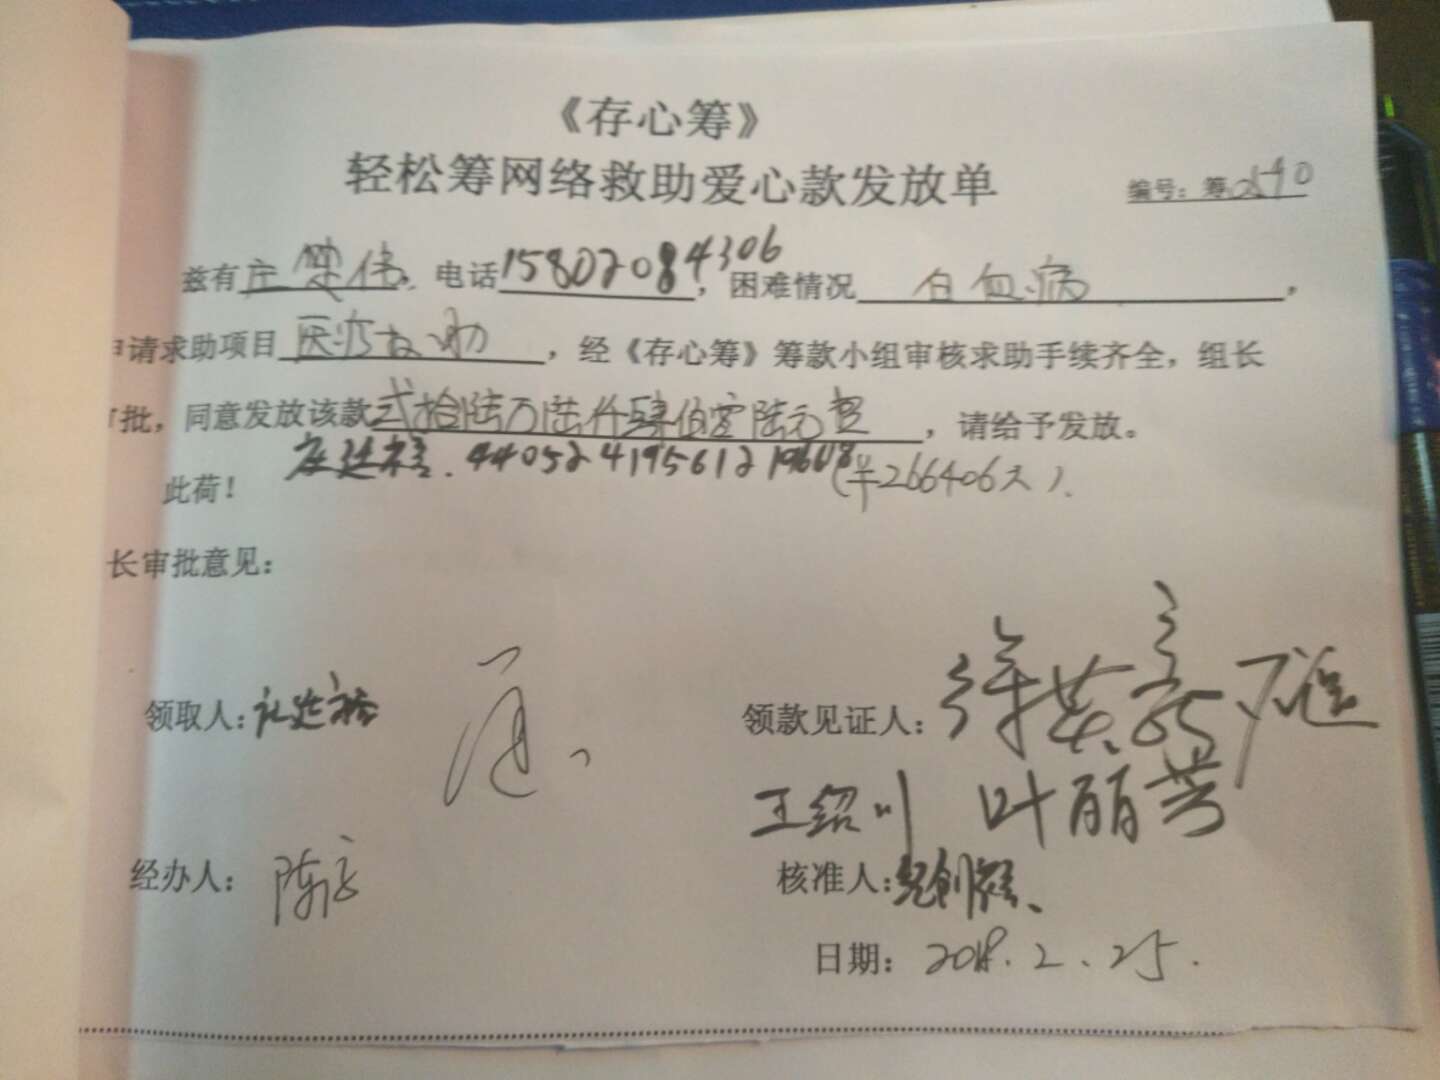 《存心筹》
轻松筹网络救助爱心款发放单
编号：筹
兹有庄楚伟，电话15802084306，困难情况 白血病，
申请求助项目医疗救助，经《存心筹》筹款小组审核求助手续齐全，组长
审批，同意发放该款弍拾陆万陆仟肆佰零陆元整，请给予发放。
此荷！
(¥266406元).
长审批意见：
领取人：
领款见证人：
王绍川 叶丽芳
经办人：
核准人：
日期：2018.2.25.